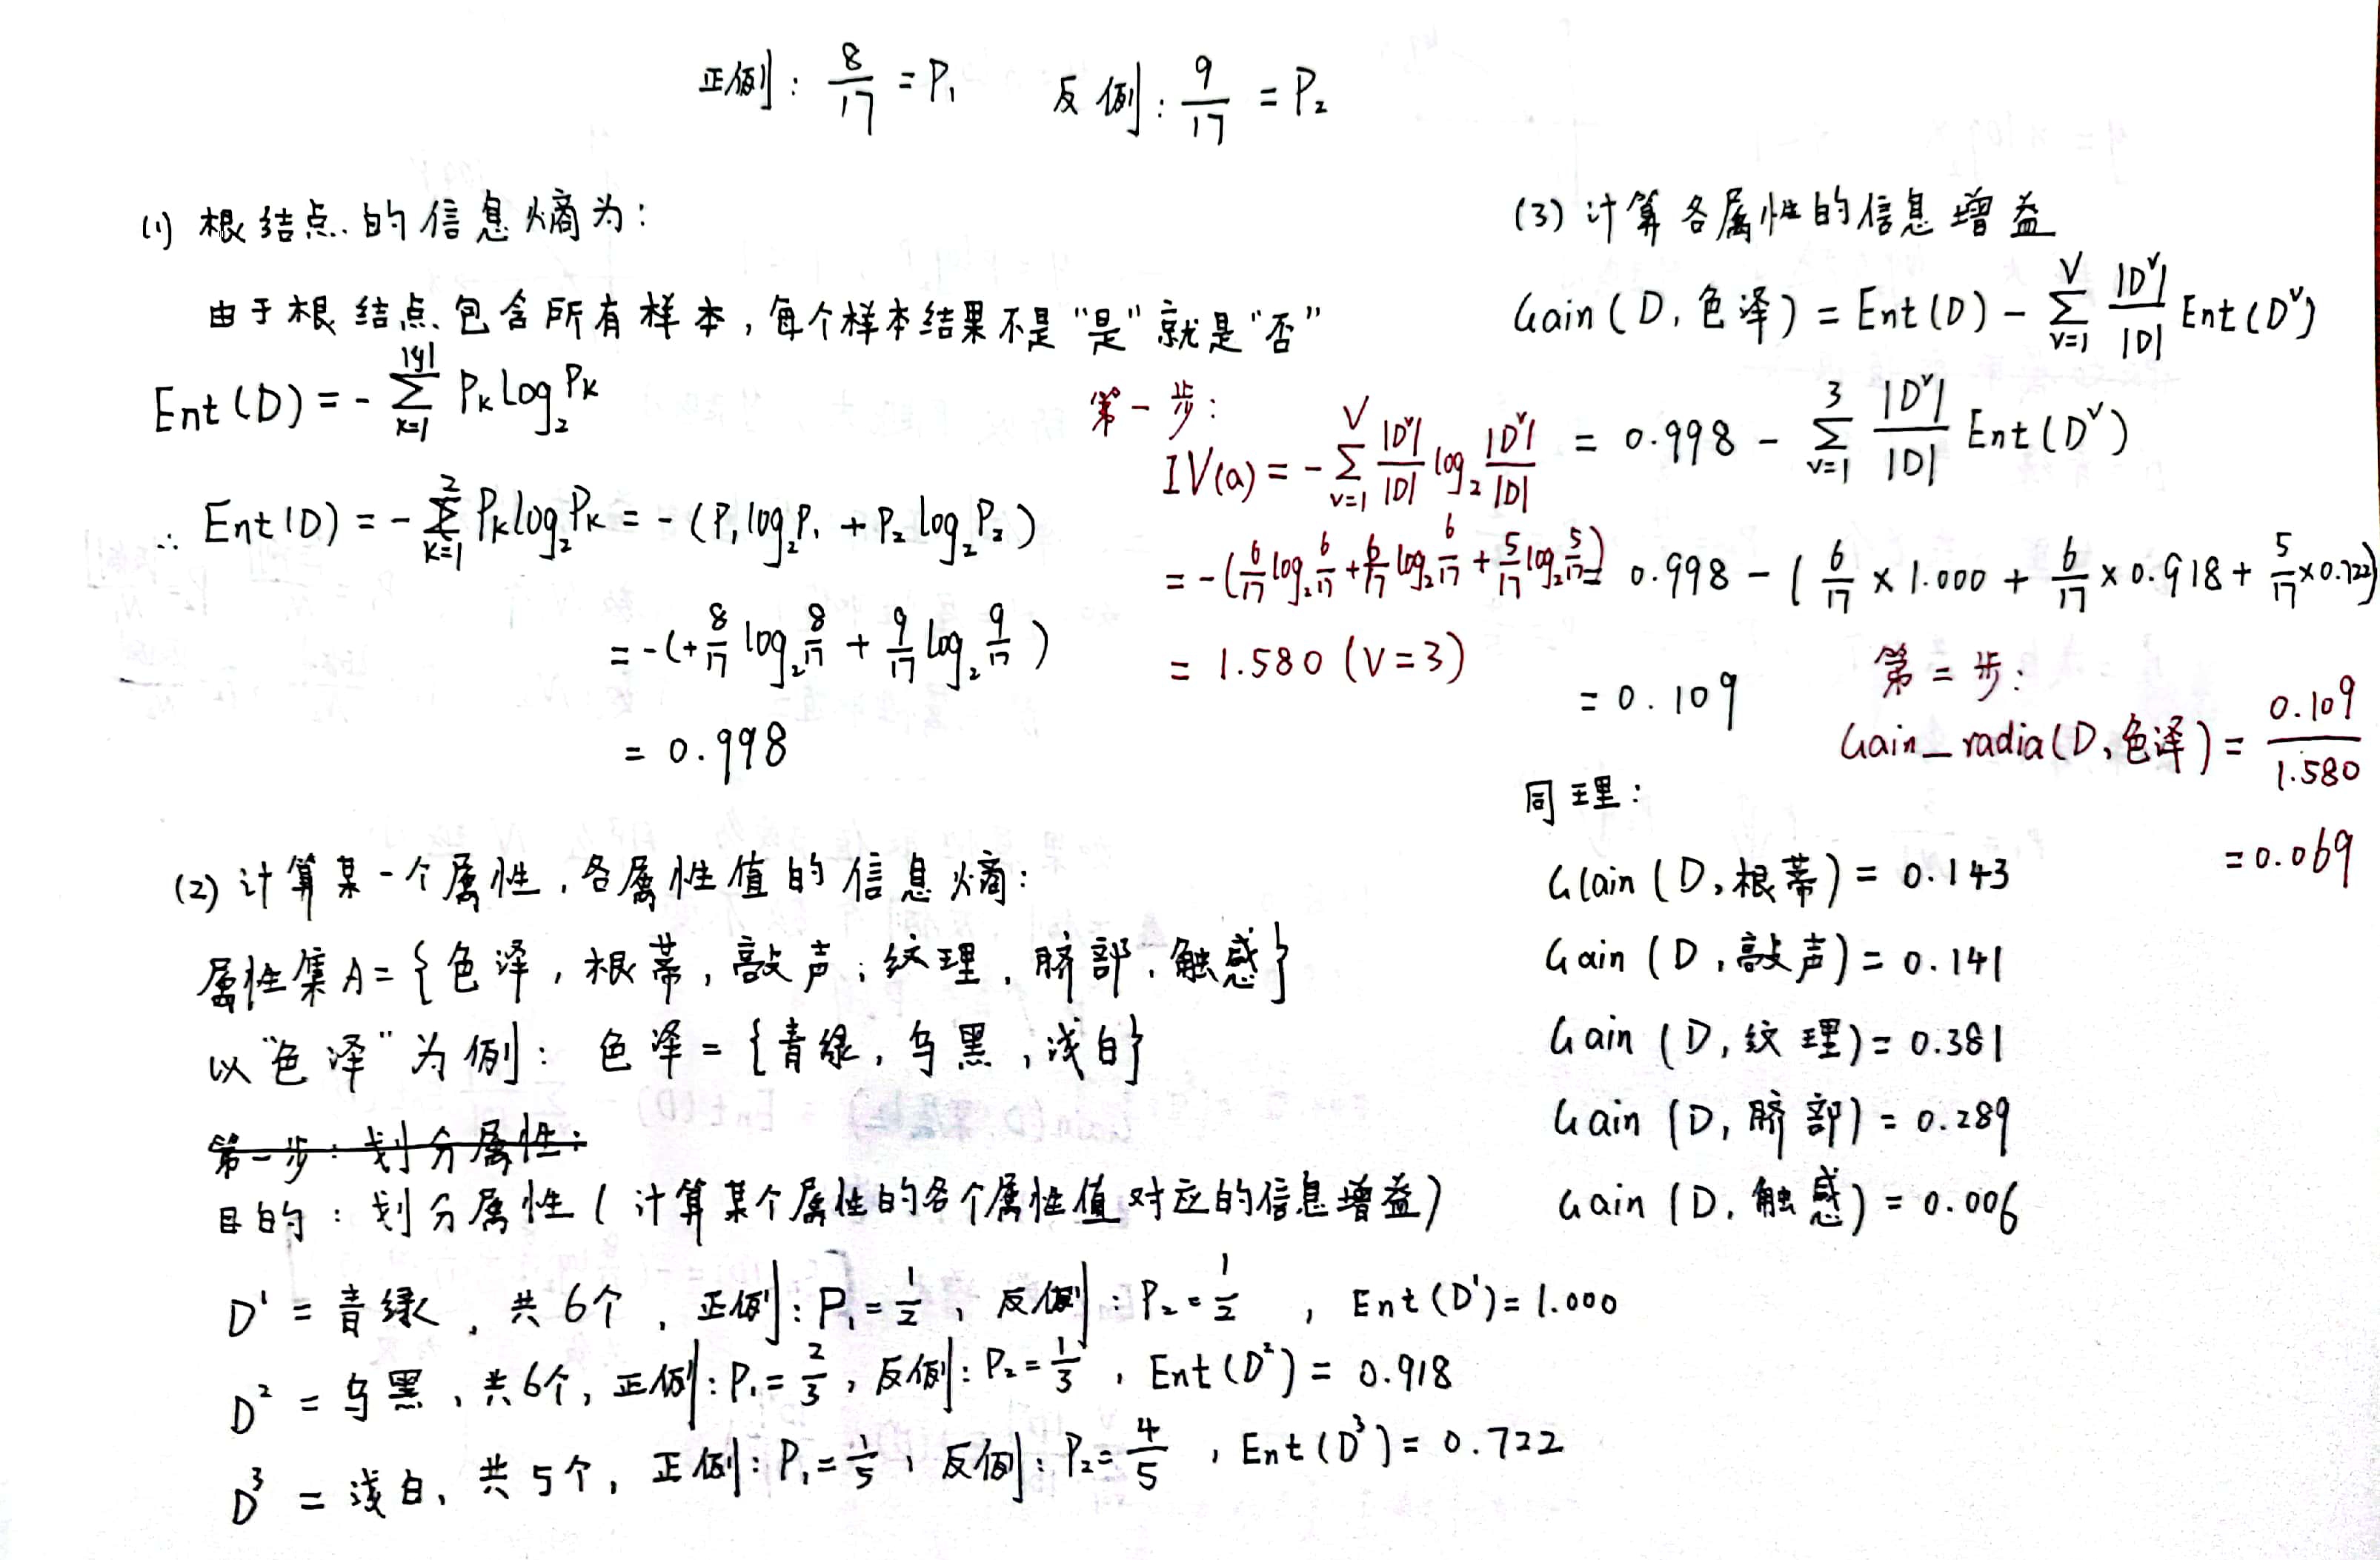 正例: 8/17 = P₁ 反例: 9/17 = P₂
(1) 根结点的信息熵为:
由于根结点包含所有样本,每个样本结果不是"是"就是"否"
Ent(D) = - ∑_{k=1}^{|y|} Pₖ log₂ Pₖ
∴ Ent(D) = - ∑_{k=1}^{2} Pₖ log₂ Pₖ = - (P₁ log₂ P₁ + P₂ log₂ P₂)
= -(+ 8/17 log₂ 8/17 + 9/17 log₂ 9/17)
= 0.998
(2) 计算某一个属性,各属性值的信息熵:
属性集A = {色泽,根蒂,敲声,纹理,脐部,触感}
以"色泽"为例: 色泽 = {青绿,乌黑,浅白}
第一步:划分属性:
目的:划分属性(计算某个属性的各个属性值对应的信息增益)
D¹ = 青绿,共6个,正例:P₁ = 1/2,反例:P₂ = 1/2,Ent(D¹) = 1.000
D² = 乌黑,共6个,正例:P₁ = 2/3,反例:P₂ = 1/3,Ent(D²) = 0.918
D³ = 浅白,共5个,正例:P₁ = 1/5,反例:P₂ = 4/5,Ent(D³) = 0.722
第一步:
IV(a) = - ∑_{v=1}^{V} |Dᵛ|/|D| log₂ |Dᵛ|/|D|
= -(6/17 log₂ 6/17 + 6/17 log₂ 6/17 + 5/17 log₂ 5/17)
= 1.580 (V=3)
(3) 计算各属性的信息增益
Gain(D,色泽) = Ent(D) - ∑_{v=1}^{V} |Dᵛ|/|D| Ent(Dᵛ)
= 0.998 - ∑_{v=1}^{3} |Dᵛ|/|D| Ent(Dᵛ)
= 0.998 - (6/17 × 1.000 + 6/17 × 0.918 + 5/17 × 0.722)
= 0.109
第二步:
Gain_radia(D,色泽) = 0.109/1.580
= 0.069
同理:
Gain(D,根蒂) = 0.143
Gain(D,敲声) = 0.141
Gain(D,纹理) = 0.381
Gain(D,脐部) = 0.289
Gain(D,触感) = 0.006